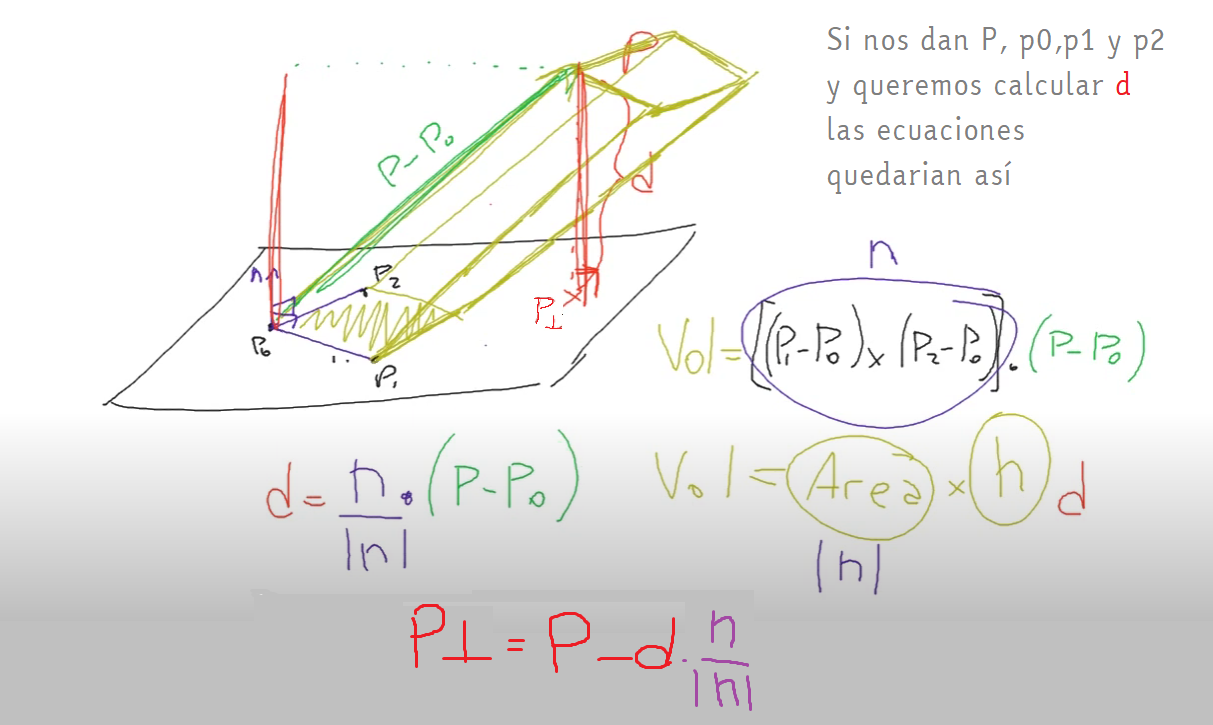 Si nos dan P, p0,p1 y p2
y queremos calcular d
las ecuaciones
quedarian así
P
P-P₀
d
n
P₂
P₀
P₁
P⊥
n
Vol = [(P₁-P₀)×(P₂-P₀)]·(P-P₀)
d = n/|n| · (P-P₀)
Vol = Area × h d
|n|
P⊥ = P - d · n/|n|